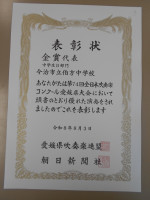 表彰状
金賞 代表
中学生B部門
今治市立伯方中学校
あなたがたは第74回全日本吹奏楽
コンクール愛媛県大会において
頭書のとおり優れた演奏をされ
ましたのでこれを表彰します
令和8年8月3日
愛媛県吹奏楽連盟
朝日新聞社